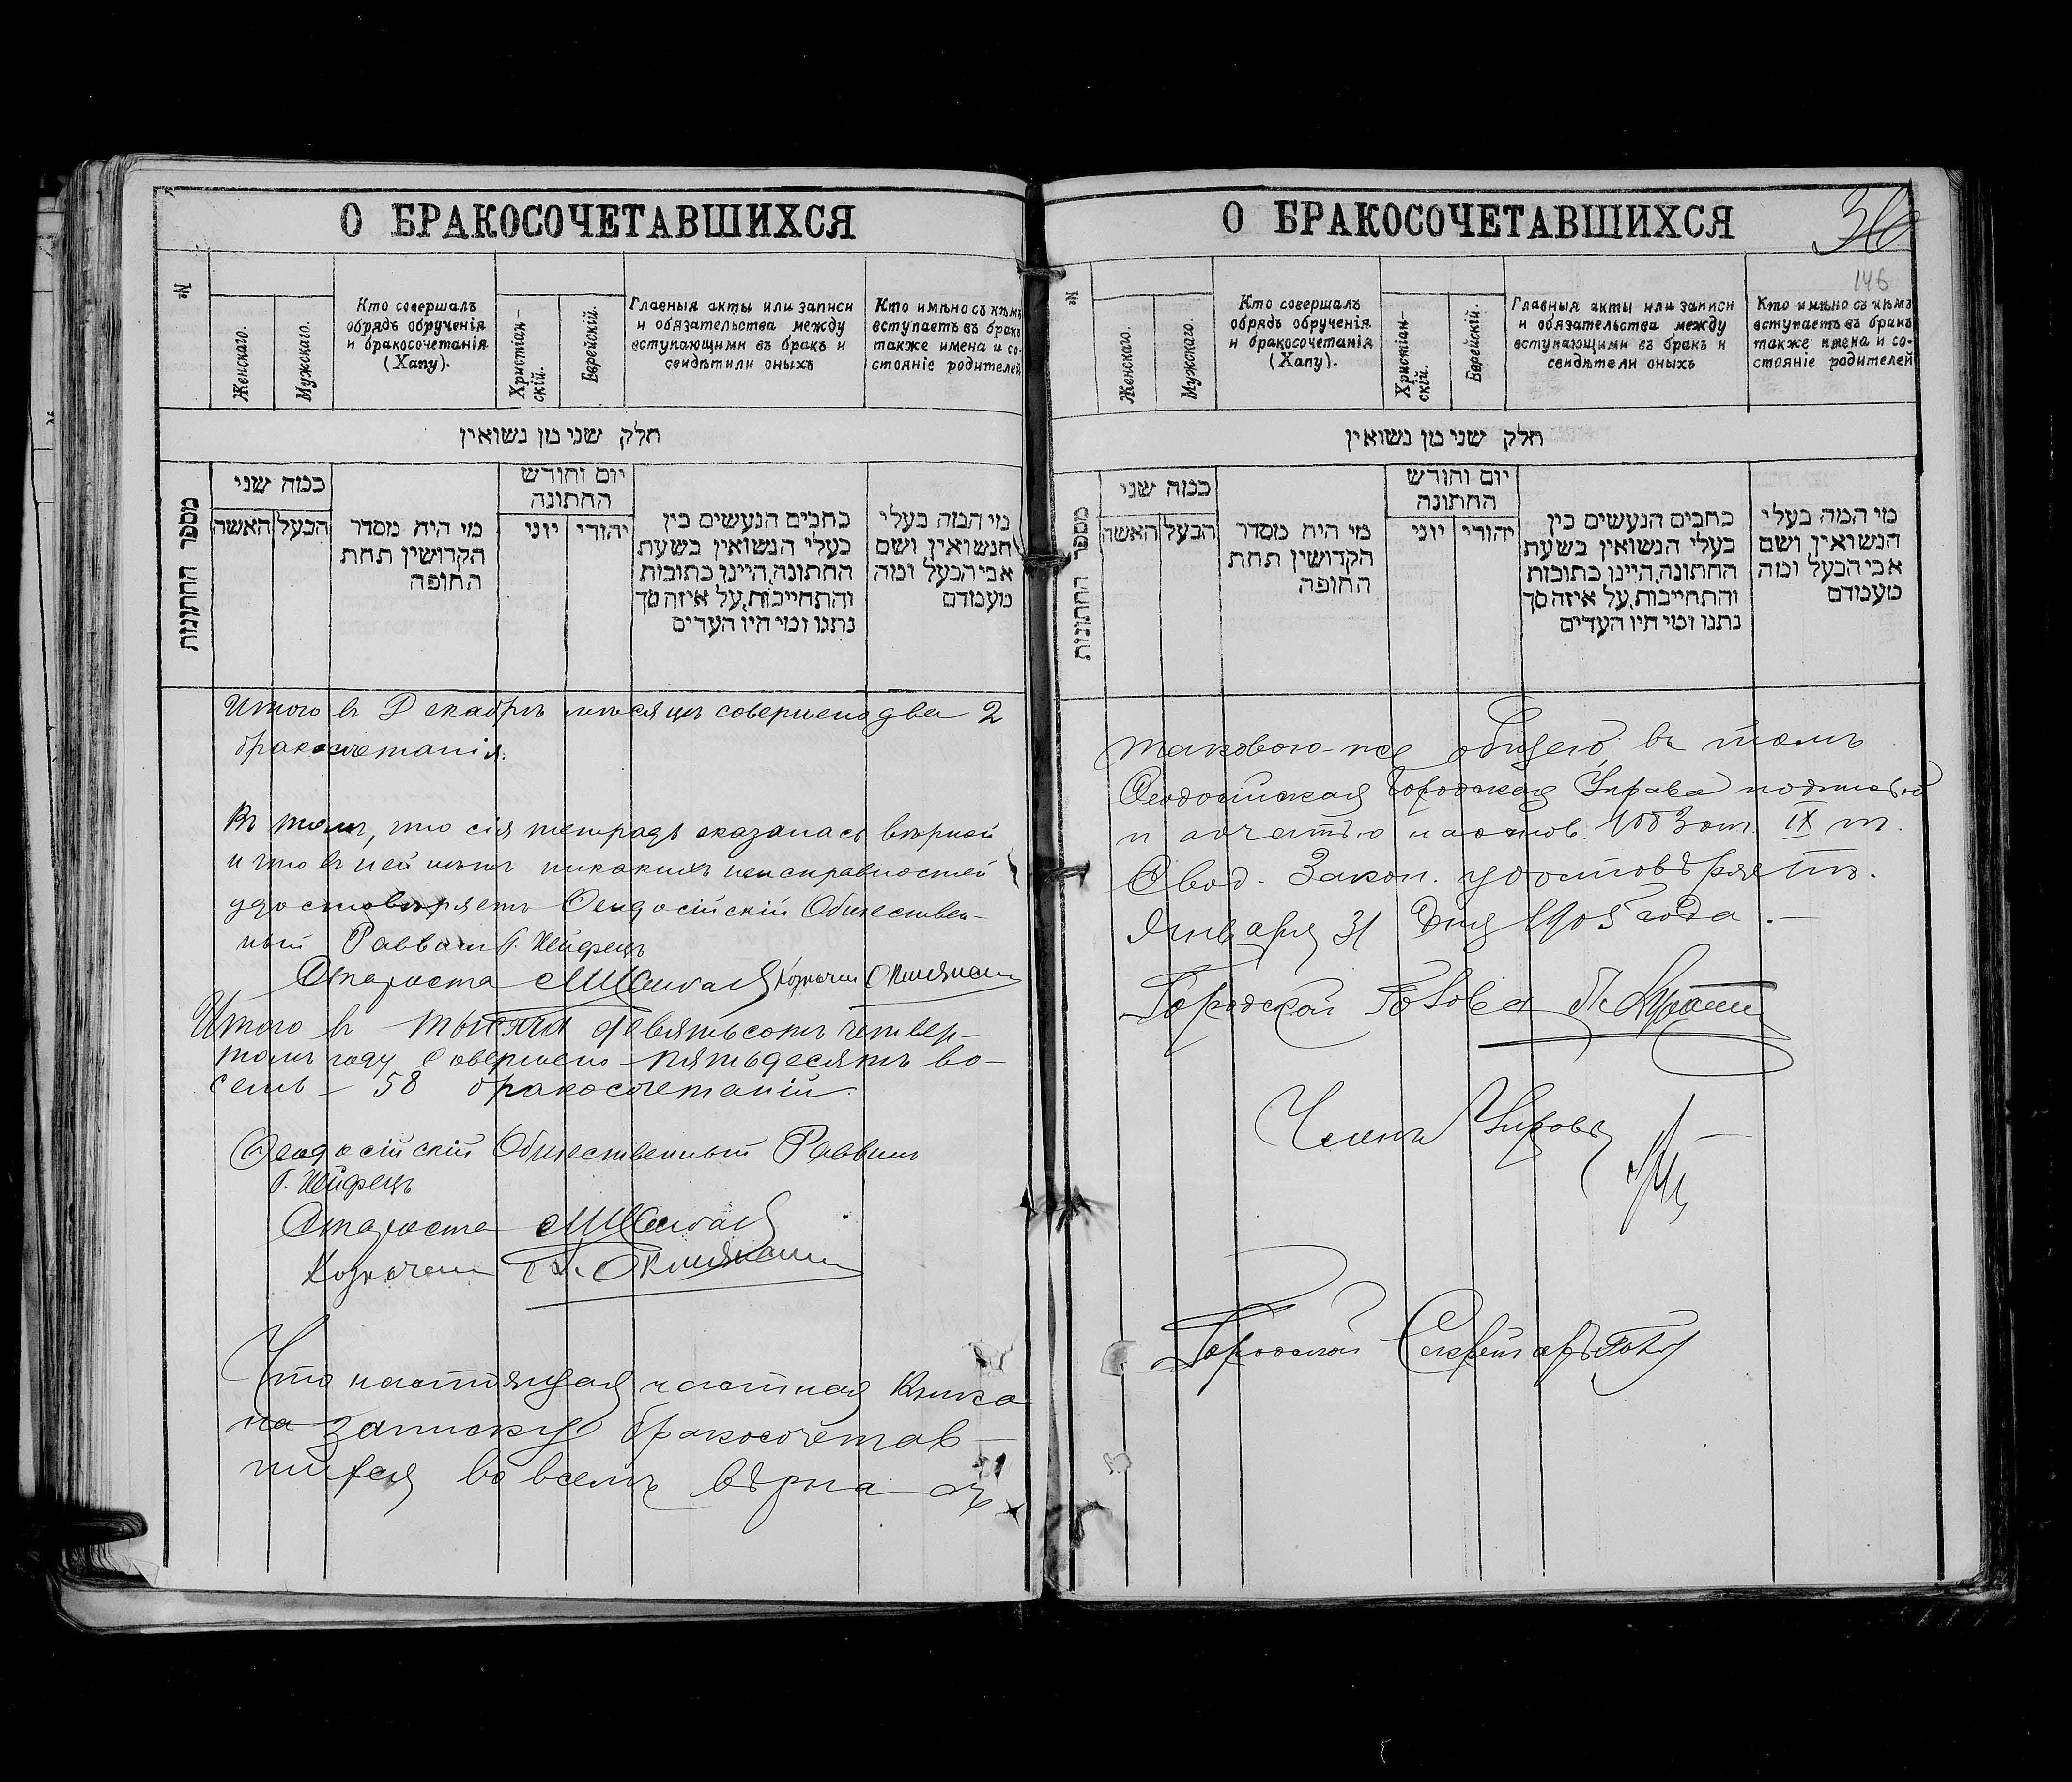 О БРАКОСОЧЕТАВШИХСЯ
№
Женскаго.
Мужскаго.
Кто совершалъ
обрядъ обрученія
и бракосочетанія
(Хапу).
Христіан-
скій.
Еврейскій.
Главныя акты или записи
и обязательства между
вступающими въ бракъ и
свидѣтили оныхъ
Кто имѣно съ кѣмъ
вступаетъ въ бракъ
также имена и со-
стояніе родителей
חלק שני מן נשואין
מספר החתונות
כמה שני
האשה
הבעל
מי היה מסדר
הקדושין תחת
החופה
יום וחודש
החתונה
יוני
יהודי
כתבים הנעשים בין
בעלי הנשואין בשעת
החתונה, היינו כתובות
והתחייבות, על איזה סך
נתנו ומי היו העדים
מי המה בעלי
הנשואין ושם
אבי הבעל ומה
מעמדם
Итого въ Декабрѣ мѣсяцѣ совершено два 2
бракосочетанія.
Въ томъ, что сія тетрадь оказалась вѣрной
и что въ ней нѣтъ никакихъ неисправностей
удостовѣряетъ Ѳеодосійскій Обществен-
ный Раввинъ
Староста
Итого въ тысяча девятьсотъ четвер-
томъ году совершено пятьдесятъ во-
семь – 58 бракосочетаній.
Ѳеодосійскій Общественный Раввинъ
Староста
Казначей
Что настоящая частная книга
на записку бракосочетав-
шихся во всемъ вѣрна съ
О БРАКОСОЧЕТАВШИХСЯ
36
146
№
Женскаго.
Мужскаго.
Кто совершалъ
обрядъ обрученія
и бракосочетанія
(Хапу).
Христіан-
скій.
Еврейскій.
Главныя акты или записи
и обязательства между
вступающими въ бракъ и
свидѣтели оныхъ
Кто имѣно съ кѣмъ
вступаетъ въ бракъ
также имена и со-
стояніе родителей
חלק שני מן נשואין
מספר החתונות
כמה שני
האשה
הבעל
מי היה מסדר
הקדושין תחת
החופה
יום וחודש
החתונה
יוני
יהודי
כתבים הנעשים בין
בעלי הנשואין בשעת
החתונה, היינו כתובות
והתחייבות, על איזה סך
נתנו ומי היו העדים
מי המה בעלי
הנשואין ושם
אבי הבעל ומה
מעמדם
таковою-же общею, въ томъ
Ѳеодосійская Городская Управа
и IX т.
Свод. Закон. удостовѣряетъ.
Января 31 дня 1905 года.
Городской Голова
Членъ Управы
Городской Секретарь